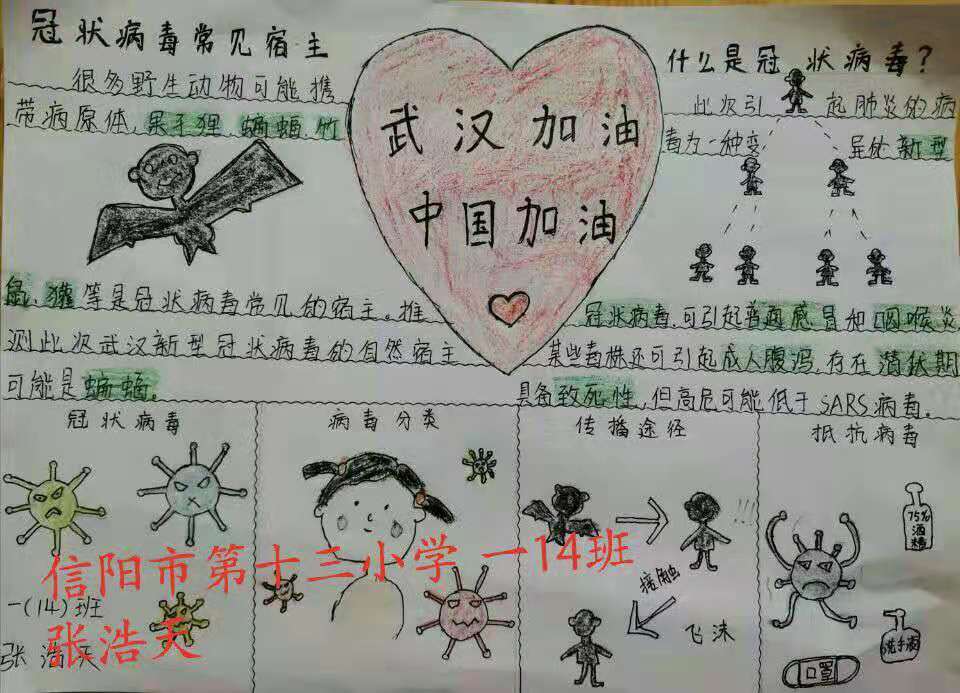 冠状病毒常见宿主
很多野生动物可能携
带病原体,果子狸、蝙蝠、竹
鼠、獾等是冠状病毒常见的宿主。推
测此次武汉新型冠状病毒的自然宿主
可能是蝙蝠。
武汉加油
中国加油
什么是冠状病毒?
此次引起肺炎的病
毒为一种变异处新型
冠状病毒,可引起普通感冒和咽喉炎
某些毒株还可引起成人腹泻,存在潜伏期
具备致死性,但高危可能低于SARS病毒。
冠状病毒
病毒分类
传播途径
!!!
接触
飞沫
抵抗病毒
75%
酒精
洗手液
口罩
信阳市第十三小学 一14班
张浩天
一(14)班
张浩天